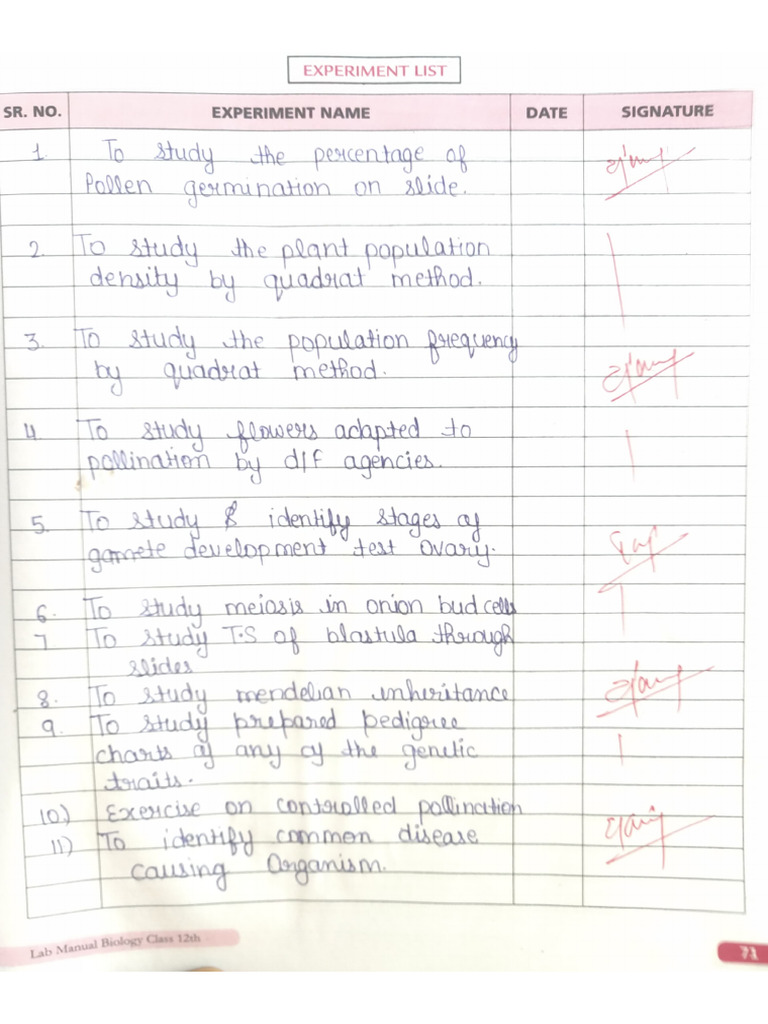 EXPERIMENT LIST
SR. NO. EXPERIMENT NAME DATE SIGNATURE
1. To study the percentage of
Pollen germination on slide.
2. To study the plant population
density by quadrat method.
3. To study the population frequency
by quadrat method.
4 To study flowers adapted to
pollination by d/f agencies.
5. To study & identify stages of
gamete development test ovary.
6. To study meiosis in onion bud cells
7 To study T.S of blastula through
slides
8. To study mendelian inheritance
9. To study prepared pedigree
charts of any of the genetic
traits.
10) Exercise on controlled pollination
11) To identify common disease
causing Organism.
Lab Manual Biology Class 12th
71